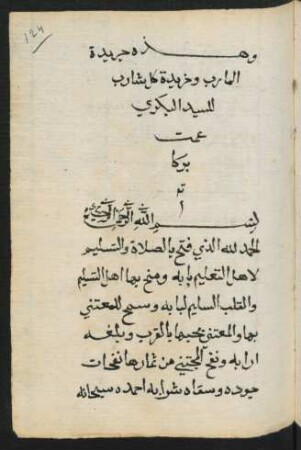 124
وهذه جريدة
المارب وخريدة كل شارب
للسيد البكري
عمت
بركا
ته
ا
بسم الله الرحمن الرحيم
الحمد لله الذي فتح بالصلاة والتسليم
لاهل التعليم بابه ومنح بها اهل التسليم
والقلب السليم لبابه وسمح للمعتني
بها والمعتني بحبيبها بالقرب وبلغه
ارابه ونفح المجتني من ثمارها نفحات
جوده وسقاه شرابه احمده سبحانه